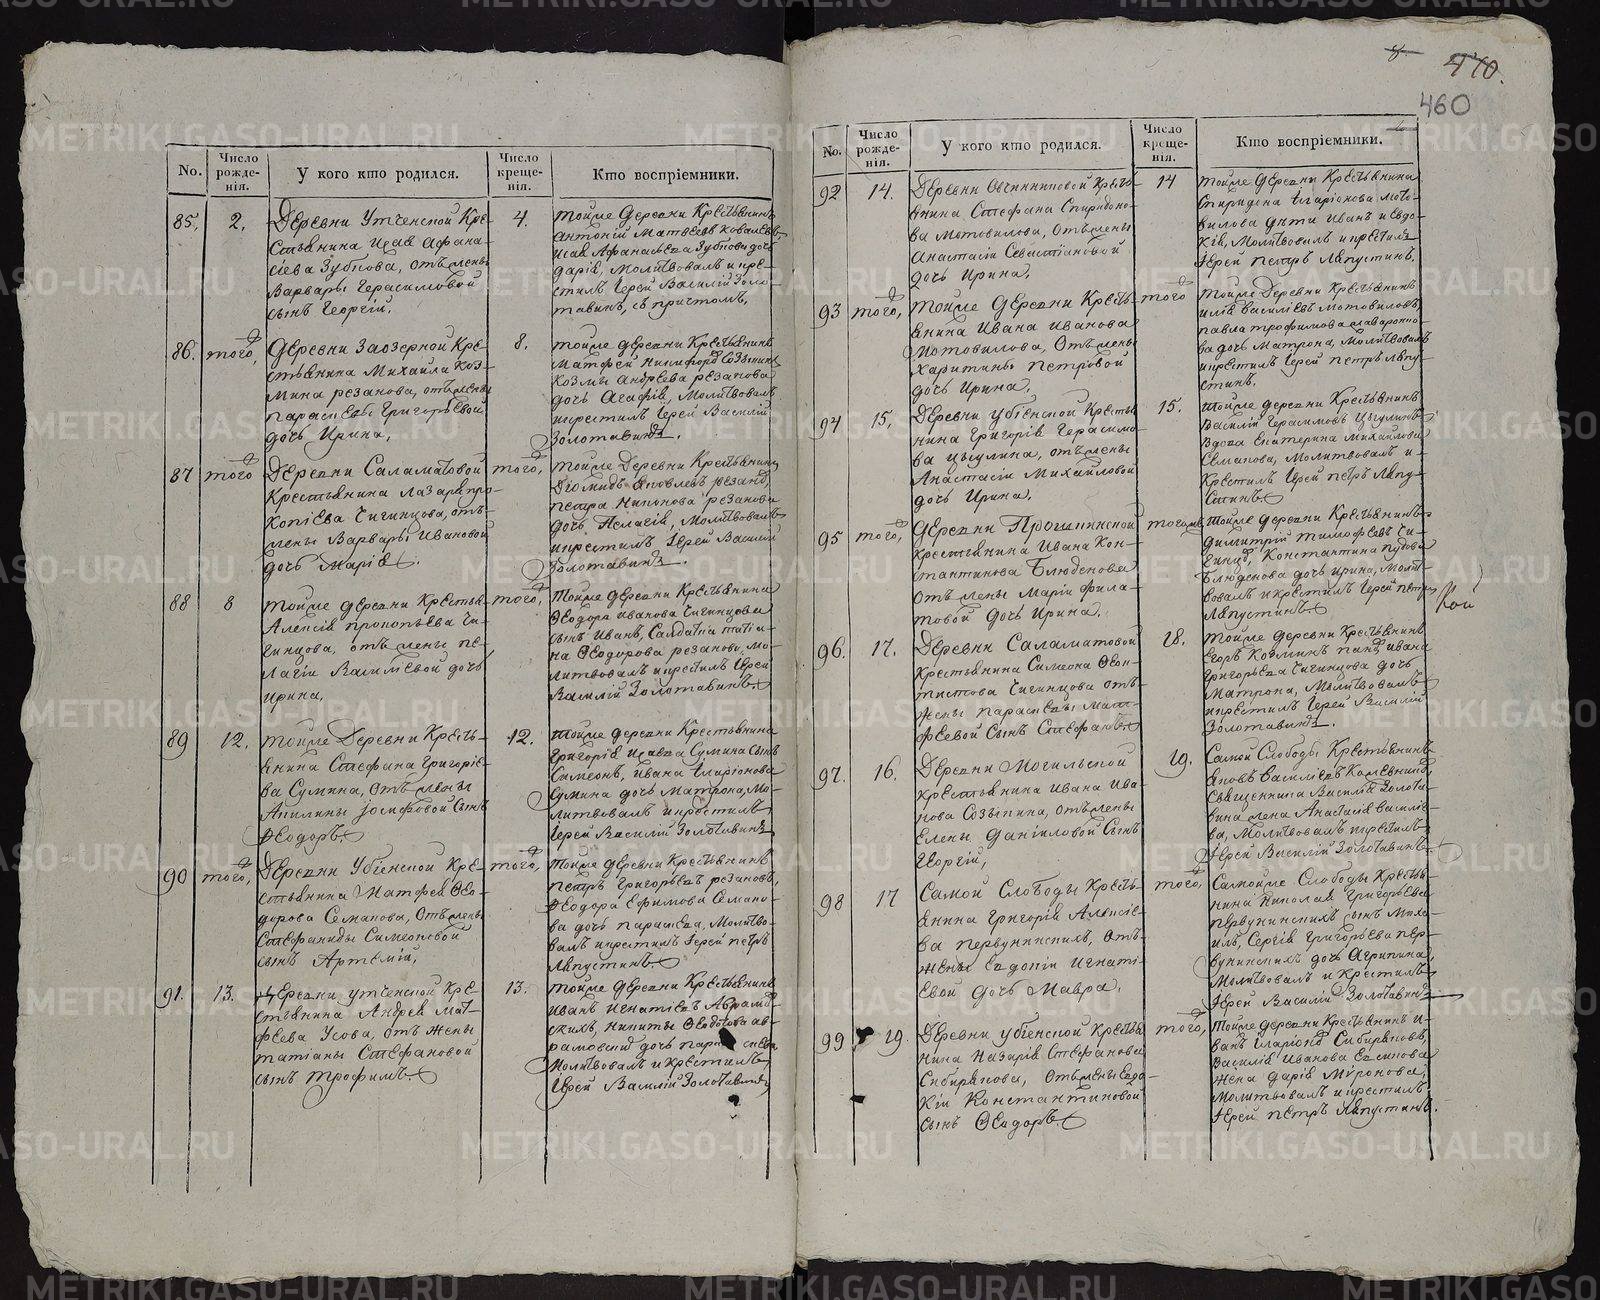 No.
Число рожде-нія.
У кого кто родился.
Число креще-нія.
Кто воспріемники.
85.
2.
Деревни Утченской Кре-
стьянина Исая Афана-
сіева Зубова, отъ жены
Варвары Герасимовой
сынъ Георгій.
4.
тойже деревни Крестьянинъ
Антоній Матвеевъ
Исая Афанасьева Зубова дочь
дарія, Молитвовалъ и кре-
стилъ Іерей Василій Золо-
тавинъ, съ причтомъ.
86.
того,
деревни Заозерной Кре-
стьянина Михаила Коз-
мина резанова, отъ жены
параскевы Григорьевой
дочь Ирина.
8.
тойже деревни Крестьянинъ
Матфей Никифоровъ Созыкинъ
Козмы Андреева резанова
дочь Агафія, Молитвовалъ
и крестилъ Іерей Василій
Золотавинъ.
87
того
деревни Саламатовой
Крестьянина Лазаря про-
копіева Чигинцова, отъ
жены Варвары Ивановой
дочь Марія.
того,
тойже деревни Крестьянинъ
Діомидъ Яковлевъ резановъ,
петра Никонова резанова
дочь Пелагія, Молитвовалъ
и крестилъ Іерей Василій
Золотавинъ.
88
8
тойже деревни Крестья-
Алексія прокопьева Чи-
гинцова, отъ жены пе-
лагіи Василіевой дочь
Ирина.
того,
тойже деревни Крестьянина
Ѳеодора иванова Чигинцова
сынъ Иванъ, Салдатка татія-
на Ѳеодорова резанова, мо-
литвовалъ и крестилъ Іерей
Василій Золотавинъ.
89
12.
тойже деревни Кресть-
янина Стефана Григоріе-
ва Сумина, отъ жены
Акилины Іосифовой сынъ
Ѳеодоръ.
12.
тойже деревни Крестьянина
Григорія Исаева Сумина сынъ
Симеонъ, Ивана Иларіонова
Сумина дочь Матрона, Мо-
литвовалъ и крестилъ
Іерей Василій Золотавинъ
90
того,
деревни Убіенской Кре-
стьянина Матфея Ѳео-
дорова Семанова, отъ жены
Стефаниды Симеоновой
сынъ Артемій.
того,
тойже деревни Крестьянинъ
петръ Григорьевъ резановъ,
Ѳеодора Ефимова Семано-
ва дочь параскева, Молитво-
валъ и крестилъ Іерей петръ
Ляпустинъ.
91.
13.
деревни утченской Кре-
стьянина Андрея Мат-
феева Усова, отъ жены
татіаны Стефановой
сынъ трофимъ.
13.
тойже деревни Крестьянинъ
Иванъ Игнатіевъ Аврамов-
скихъ, Никиты Ѳеодотова ав-
рамовских дочь параскева
Молитвовалъ и крестилъ
Іерей Василій Золотавинъ
470.
460
No.
Число рожде-нія.
У кого кто родился.
Число креще-нія.
Кто воспріемники.
92
14.
деревни Овчинниковой Кресть-
янина Стефана Спиридоно-
ва Мотовилова, отъ жены
Анастасіи Севастіановой
дочь Ирина.
14
тойже деревни Крестьянина
Спиридона Иларіонова Мото-
вилова дети Иванъ и Евдо-
кія, Молитвовалъ и крестилъ
Іерей петръ Ляпустинъ.
93
того,
тойже деревни Кресть-
янина Ивана Иванова
Мотовилова, отъ жены
Харитины Петровой
дочь Ирина.
того
тойже деревни Крестьянинъ
илія Василіевъ мотовиловъ,
павла трофимова
ва дочь Матрона, Молитвовалъ
и крестилъ Іерей петръ Ляпу-
стинъ.
94
15.
деревни убіенской Крестья-
нина Григорія Герасимо-
ва Цыцулина, отъ жены
Анастасіи Михайловой
дочь Ирина.
15.
тойже деревни Крестьянинъ
Василій Герасимовъ
Вдова Екатерина Михайлова
Семанова, Молитвовалъ и
Крестилъ Іерей петръ Ляпу-
стинъ.
95
того,
деревни Прошкинской
Крестьянина Ивана Кон-
стантинова Блюденова
отъ жены Маріи Фила-
товой дочь Ирина.
тогоже
тойже деревни Крестьянинъ
Димитрій тимофеевъ Чи-
гинцовъ, Константина
Блюденова дочь ирина, Молит-
вовалъ и крестилъ Іерей петръ
Ляпустинъ
96.
17.
деревни Саламатовой
Крестьянина Симеона Ѳеок-
тистова Чигинцова отъ
жены параскевы Мат-
феевой сынъ Стефанъ.
18.
тойже деревни Крестьянинъ
Егоръ Козминъ ивана
Григорьева Чигинцова дочь
Матрона, Молитвовалъ
и крестилъ Іерей Василій
Золотавинъ.
97.
16.
деревни Могильской
Крестьянина Ивана Ива-
нова Созыкина, отъ жены
Елены Даніиловой сынъ
Георгій,
19.
Самой Слободы Крестьянинъ
Яковъ Василіевъ
Священника Василія Золота-
вина жена Анастасія Василіе-
ва, Молитвовалъ и крестилъ
Іерей Василій Золотавинъ
98
17
Самой Слободы Кресть-
янина Григорія Алексіе-
ва первухинскихъ, отъ
жены Евдокіи Игнаті-
евой дочь Мавра.
того,
Самойже Слободы Кресть-
нина Николая Григорьева
первухинскихъ сынъ Миха-
илъ, Сергія Григорьева пер-
вухинскихъ дочь Агрипина,
Молитвовалъ и Крестилъ
Іерей Василій Золотавинъ
99
19.
деревни убіенской Крестья-
нина Назарія Стефанова
Сибирякова, отъ жены Евдо-
кіи Константиновой
сынъ Ѳеодоръ.
того,
тойже деревни Крестьянинъ и-
ванъ Иларіоновъ Сибиряковъ,
Василія Иванова Евсинова
жена дарія Миронова,
Молитвовалъ и крестилъ
Іерей петръ Ляпустинъ.
METRIKI.GASO-URAL.RU